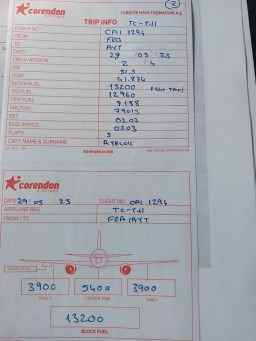 2
corendon
AIRLINES
TURİSTİK HAVA TAŞIMACILIK A.Ş.
TRIP INFO TC-TJI
FLIGHT NO CAI 1294
FROM FRA
TO AYT
DATE 29 / 05 / 23
CREW VERSION 2 / 4
DOI 51.5
DOW 41.874
BLOCK FUEL 13200
T/O FUEL 12960
TRIP FUEL 9188
MACTOW 79015
EET 03.03
ENDURANCE 05.03
FLAPS 5
CAPT. NAME & SURNAME
corendon
AIRLINES
DATE 29/05 / 23 FLIGHT NO: CAI 1294
AIRPLANE REG TC-TJI
FROM / TO FRA/AYT
3900 5400 3900
CENTER TANK
13200
BLOCK FUEL